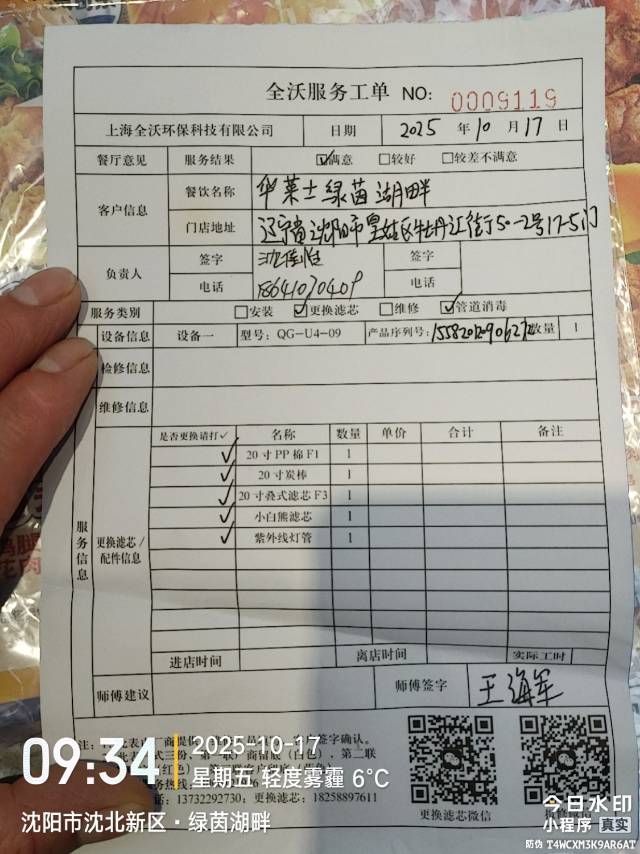 全沃服务工单 NO: 0009119
上海全沃环保科技有限公司 日期 2025 年 10 月 17 日
餐厅意见 服务结果 ☑满意 □较好 □较差不满意
客户信息 餐饮名称 华莱士绿茵湖畔
门店地址 辽宁省沈阳市皇姑区牡丹江街50-2号17-5门
负责人 签字 签字
电话 18641070409 电话
服务类别 □安装 ☑更换滤芯 □维修 ☑管道消毒
设备信息 设备一 型号: QG-U4-09 产品序列号: 数量 1
检修信息
维修信息
服务信息 更换滤芯/配件信息
是否更换请打✓ 名称 数量 单价 合计 备注
✓ 20寸PP棉F1 1
✓ 20寸炭棒 1
✓ 20寸叠式滤芯F3 1
✓ 小白熊滤芯 1
✓ 紫外线灯管 1
进店时间 离店时间 实际工时
师傅建议 师傅签字 王海军
签字确认。
第二联
: 13732292730; 更换滤芯: 18258897611
更换滤芯微信
09:34 2025-10-17
星期五 轻度雾霾 6°C
沈阳市沈北新区·绿茵湖畔
今日水印
小程序 真实
防伪 T4WCXM3K9AR6AT